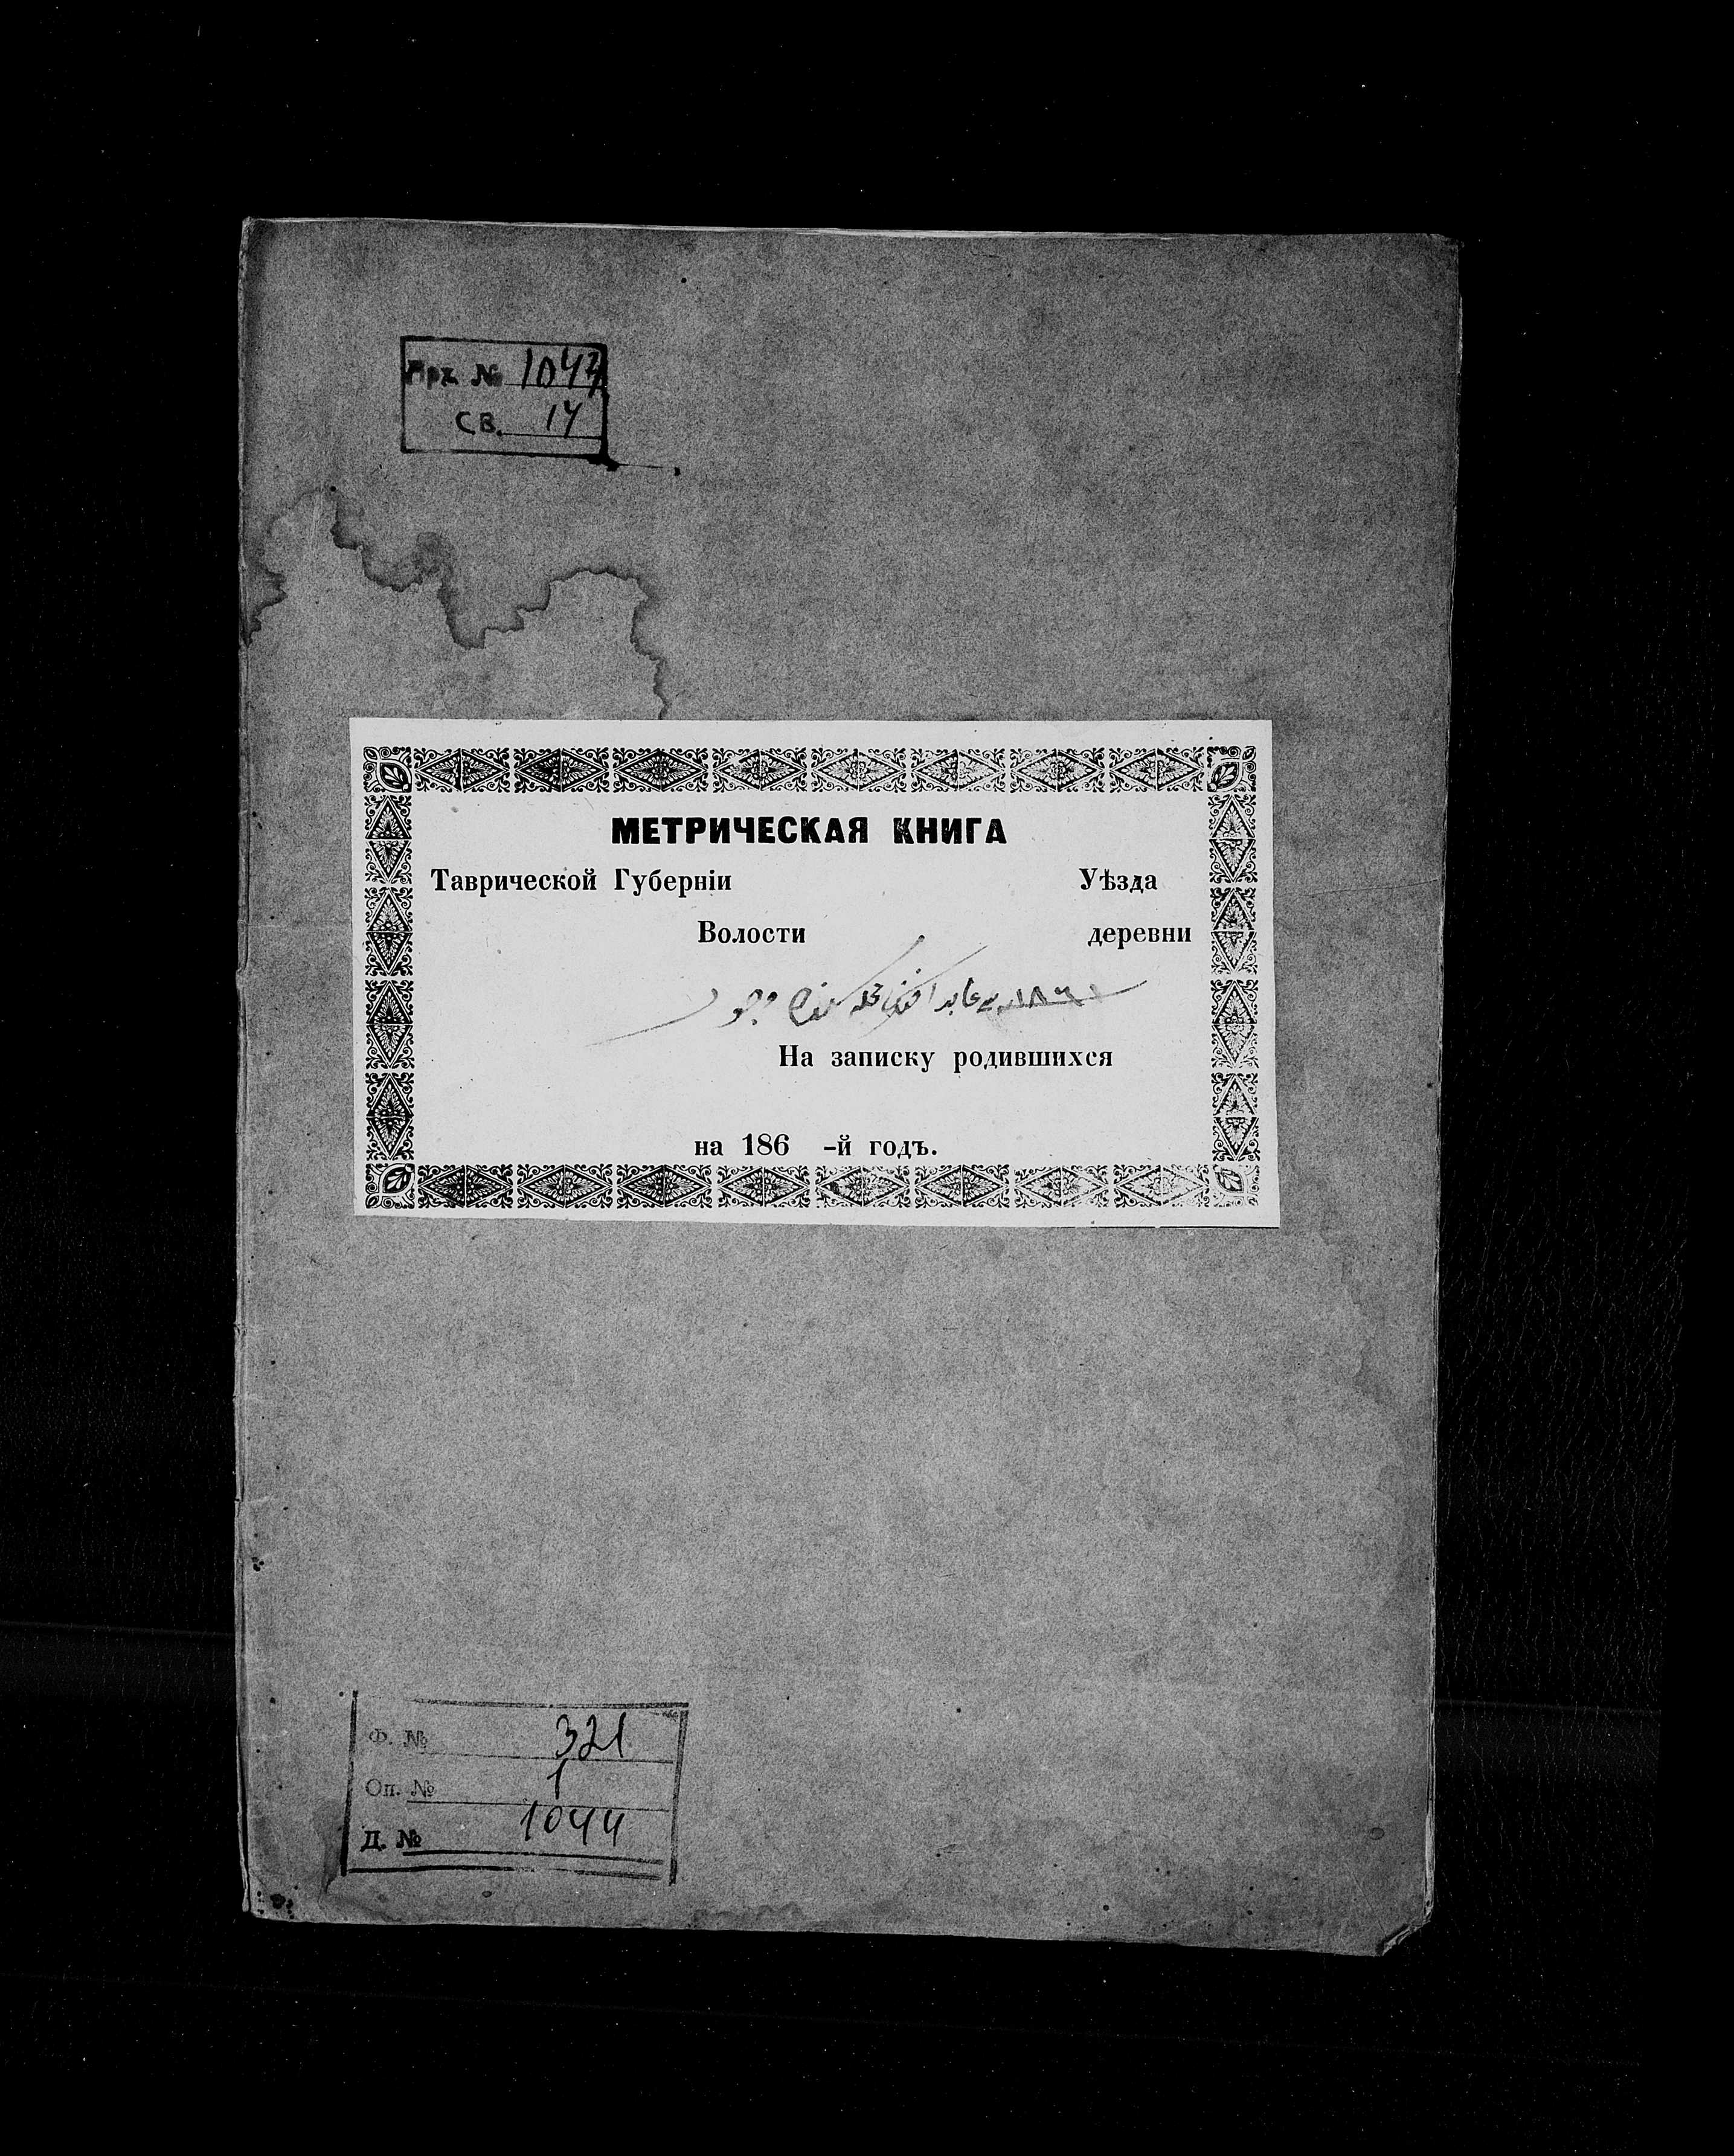 Арх. № 1044
СВ. 14
МЕТРИЧЕСКАЯ КНИГА
Таврической Губерніи Уѣзда
Волости деревни
عابد افندى محله
На записку родившихся
на 186 -й годъ.
Ф. № 321
Оп. № 1
Д. № 1044